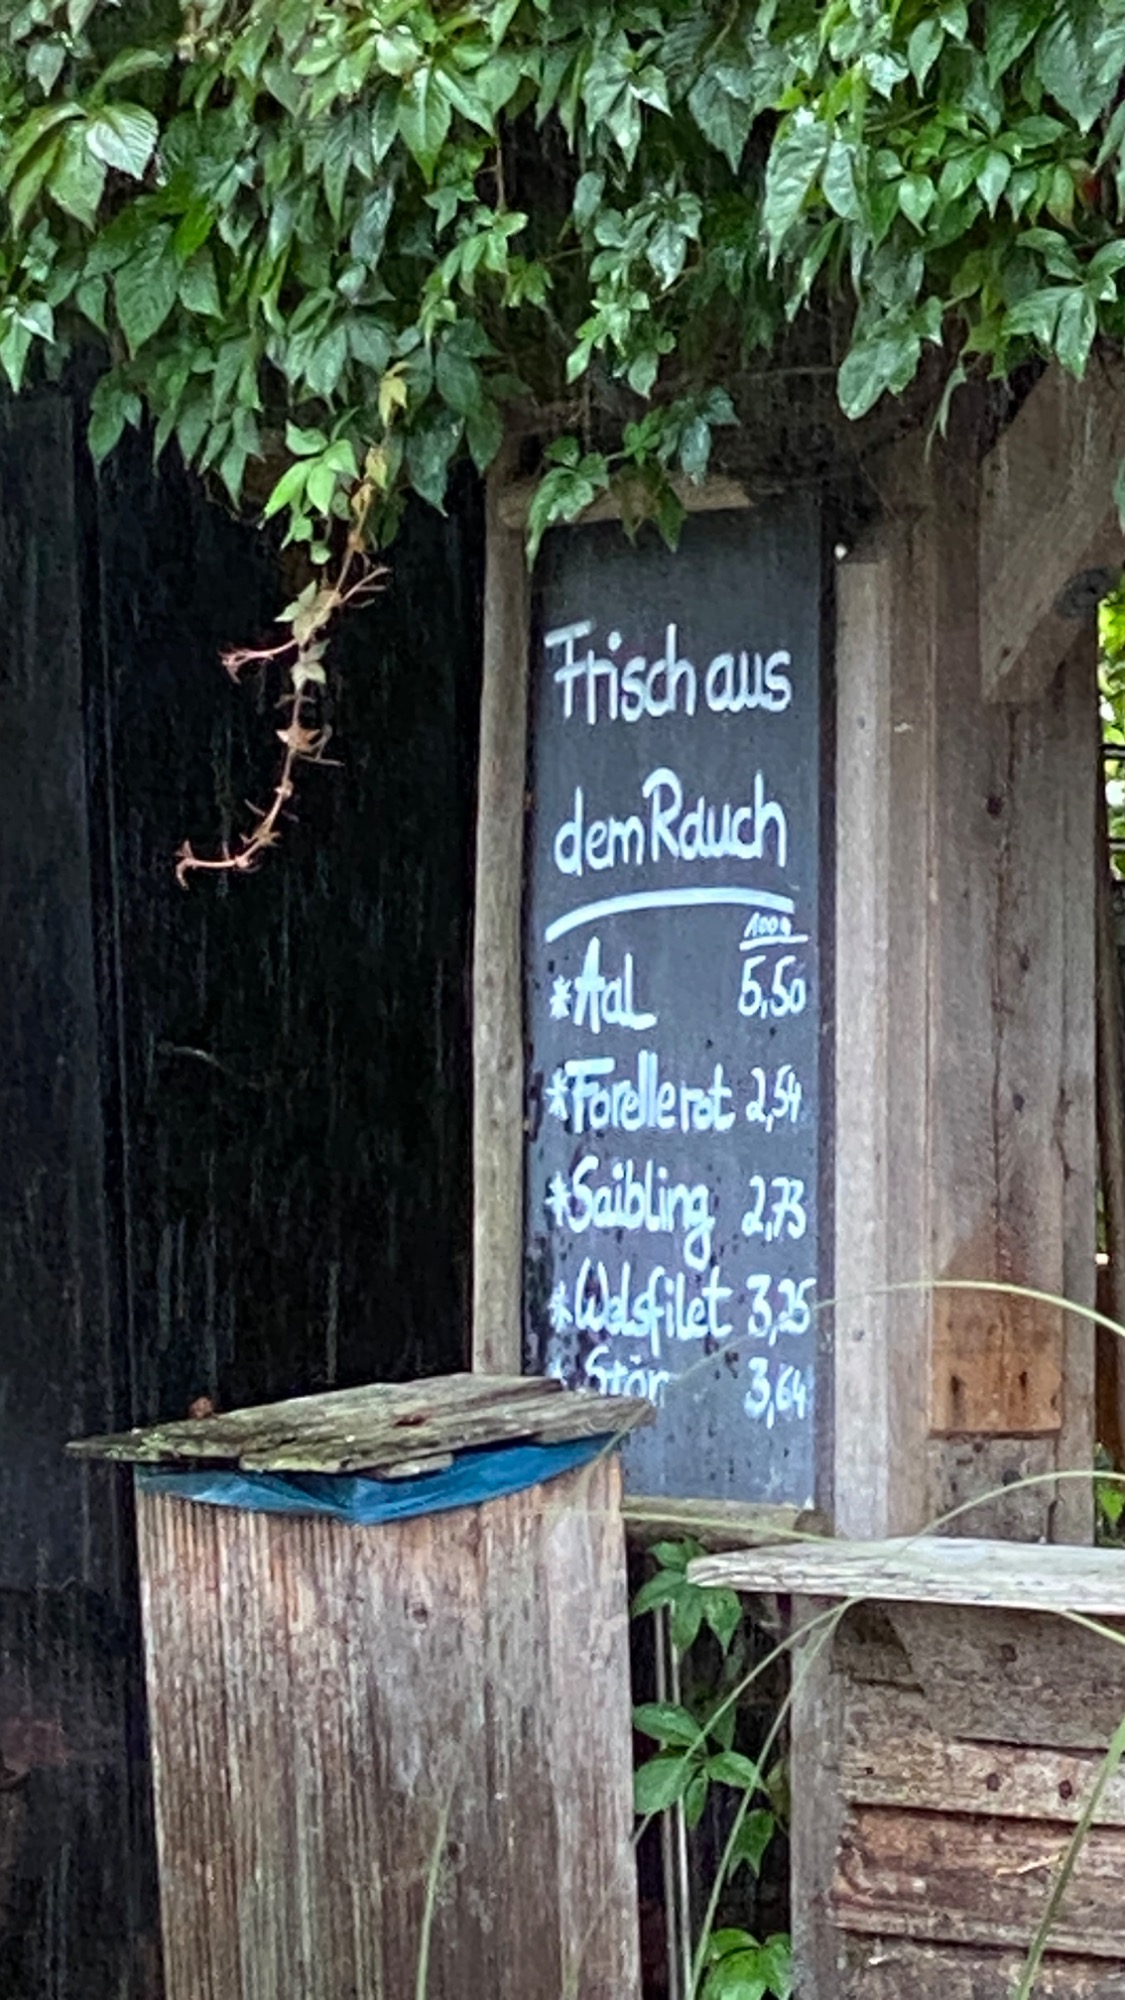 Frisch aus
dem Rauch
100g
*Aal 5,50
*Forelle rot 2,54
*Saibling 2,73
*Welsfilet 3,25
* Stör 3,64